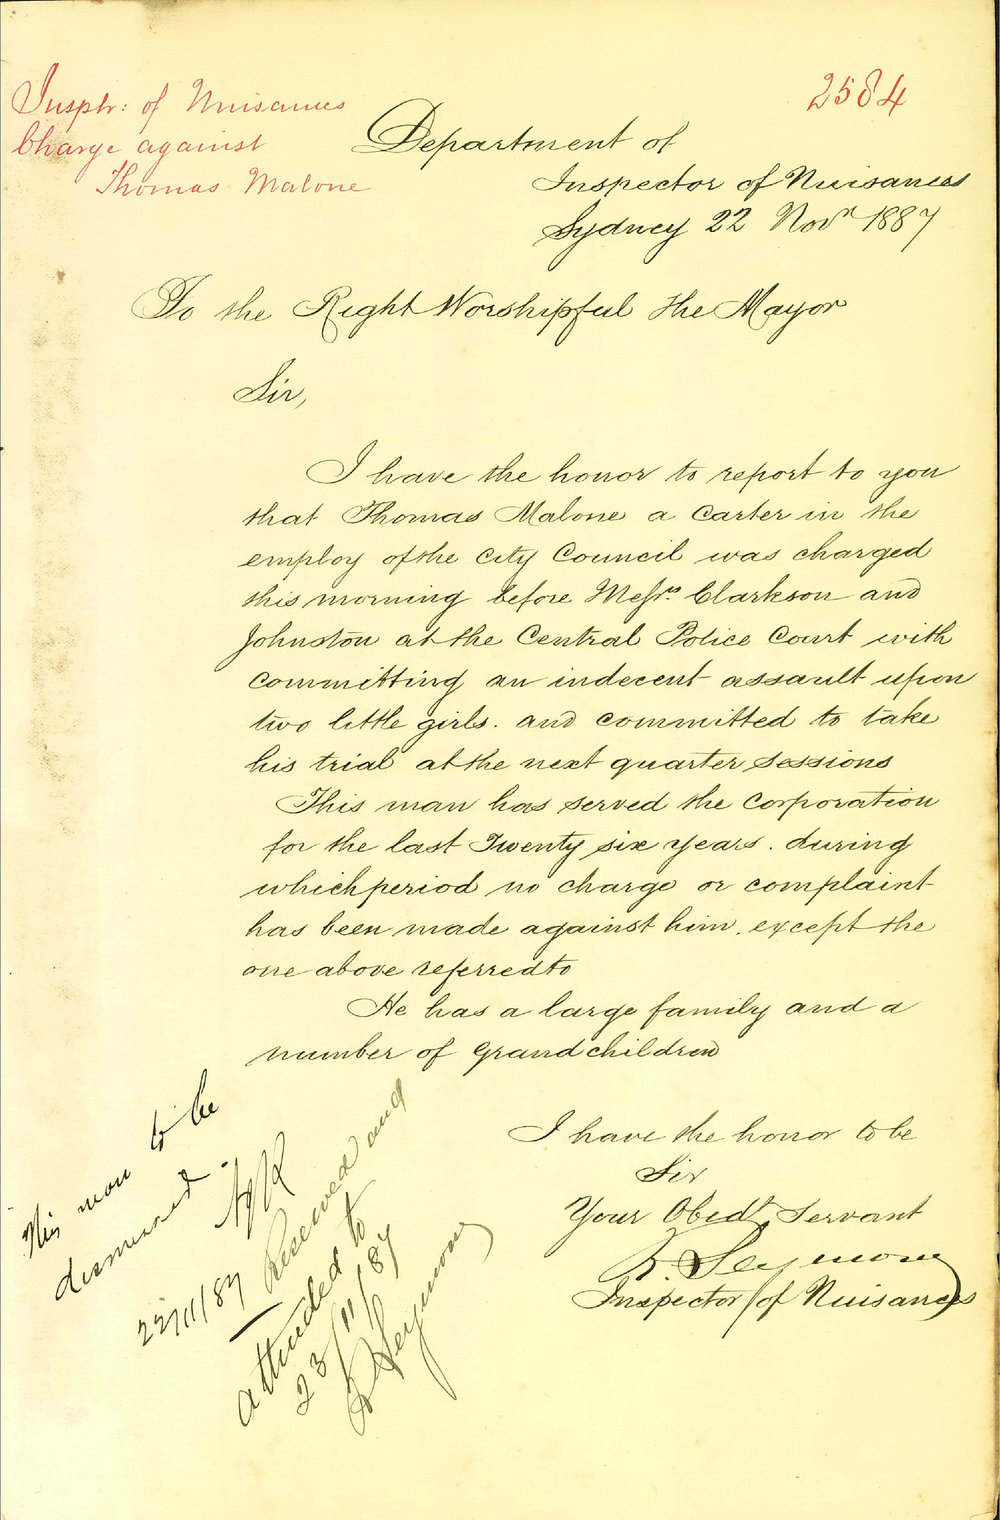 2584
Insptr: of Nuisances
Charge against
Thomas Malone
Department of
Inspector of Nuisances
Sydney 22 Novr 1887
To the Right Worshipful the Mayor
Sir,
I have the honor to report to you
that Thomas Malone a Carter in the
employ of the City Council was charged
this morning before Messrs Clarkson and
Johnston at the Central Police Court with
committing an indecent assault upon
two little girls. and committed to take
his trial at the next quarter sessions
This man has served the Corporation
for the last Twenty six years. during
which period no charge or complaint
has been made against him. except the
one above referred to
He has a large family and a
number of Grandchildren
I have the honor to be
Sir
Your Obedt Servant
R. Seymour
Inspector of Nuisances
This man to be
dismissed.
22/11/87
Received and
attended to
23/11/87
R Seymour